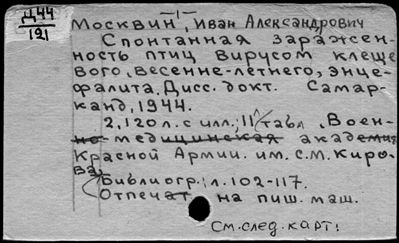 Д44
121
Москвин, Иван Александрович
Спонтанная заражен-
ность птиц вирусом клеще
вого, весенне-летнего, энце-
фалита. Дисс. докт. Самар-
канд, 1944.
2,120 л. с илл., 11 табл. Воен-
но медицинская академия
Красной Армии. им. С.М. Киро-
ва.
Библиогр.: л. 102-117.
Отпечат на пиш. маш.
См. след. карт: